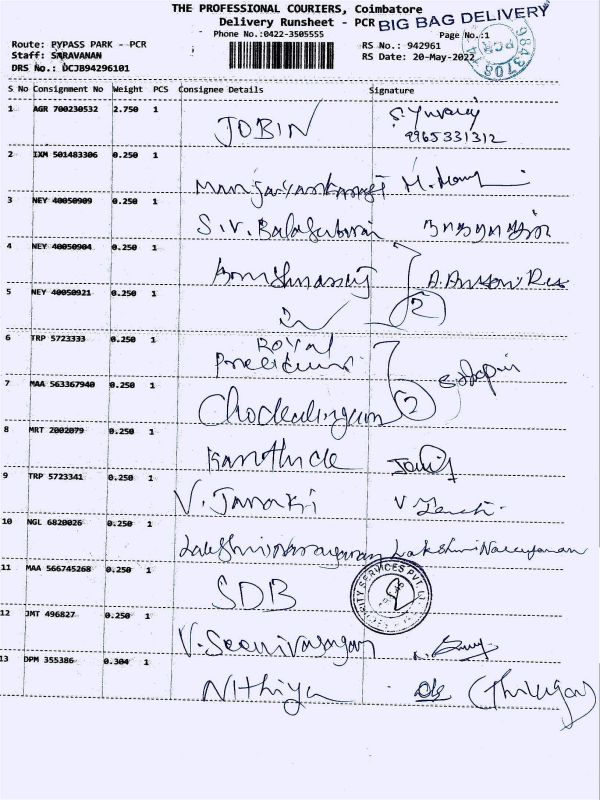 THE PROFESSIONAL COURIERS, Coimbatore
Delivery Runsheet - PCR
BIG BAG DELIVERY
Phone No.:0422-3505555
Page No.:1
Route: PYPASS PARK - PCR
RS No.: 942961
Staff: SARAVANAN
RS Date: 20-May-2022
DRS No.: DCJB94296101
PCR
S No Consignment No Weight PCS Consignee Details Signature
1 AGR 700230532 2.750 1 JOBIN
9965331312
2 IXM 501483306 0.250 1
3 NEY 40050909 0.250 1 S.V.
4 NEY 40050904 0.250 1
5 NEY 40050921 0.250 1 2
6 TRP 5723333 0.250 1 ROYAL
7 MAA 563367940 0.250 1 Chockalingam 2
8 MRT 2002079 0.250 1
9 TRP 5723341 0.250 1 V. Janaki V
10 NGL 6820026 0.250 1 Lakshminarayanan Lakshminarayanan
11 MAA 566745268 0.250 1 SDB
12 JMT 496827 0.250 1 V. Seenivasagan
13 DPM 355386 0.304 1 Nithiya